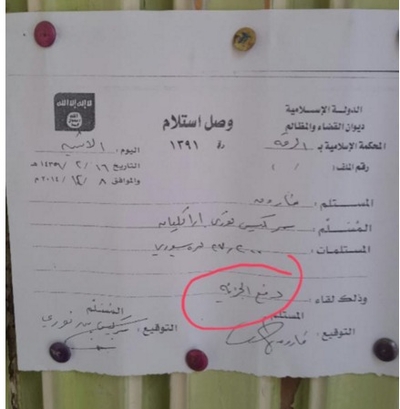 لا إله إلا الله
الدولة الإسلامية
ديوان القضاء والمظالم
المحكمة الإسلامية بـ الرقة
رقم الملف: / /
وصل استلام
رقم ١٣٩١
اليوم: الاثنين
التاريخ ١٦ / ٢ / ١٤٣٦ هـ
والموافق ٨ / ١٢ / ٢٠١٤ م
المستلم: فاروق
المُسَلِّم: سركيس
المستلمات: سوري
وذلك لقاء: دفع الجزية
المستلم
التوقيع:
المُسَلِّم
التوقيع: سركيس نوري